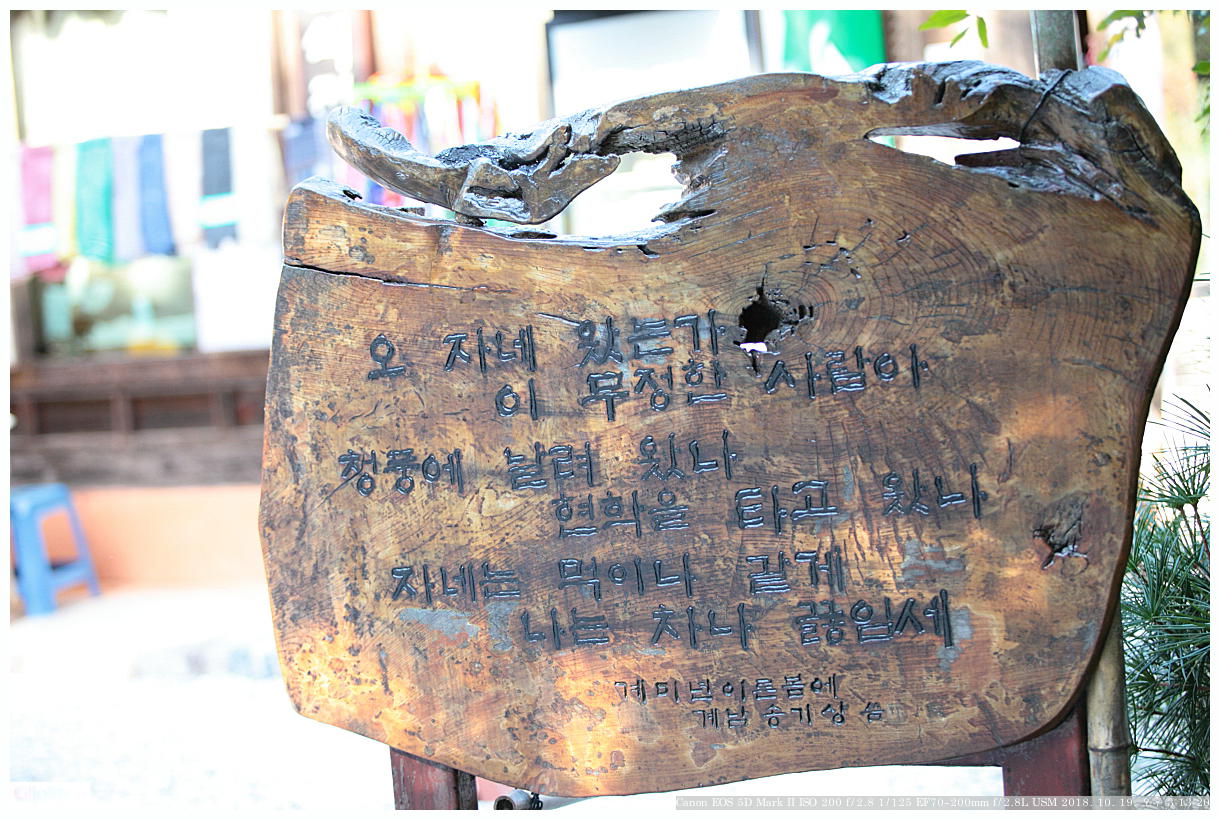 오 자네 왔는가
이 무정한 사람아
청풍에 날려 왔나
현학을 타고 왔나
자네는 먹이나 갈게
나는 차나 끓임세
계미년이른봄에
계남 송기상 씀
Canon EOS 5D Mark II ISO 200 f/2.8 1/125 EF70-200mm f/2.8L USM 2018. 10. 19.